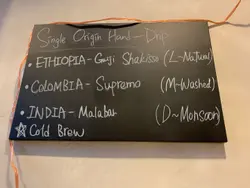 Single Origin Hand-Drip
• ETHIOPIA - Guji Shakisso (L-Natural)
• COLOMBIA - Supremo (M-Washed)
• INDIA - Malabar (D-Monsoon)
☆ Cold Brew